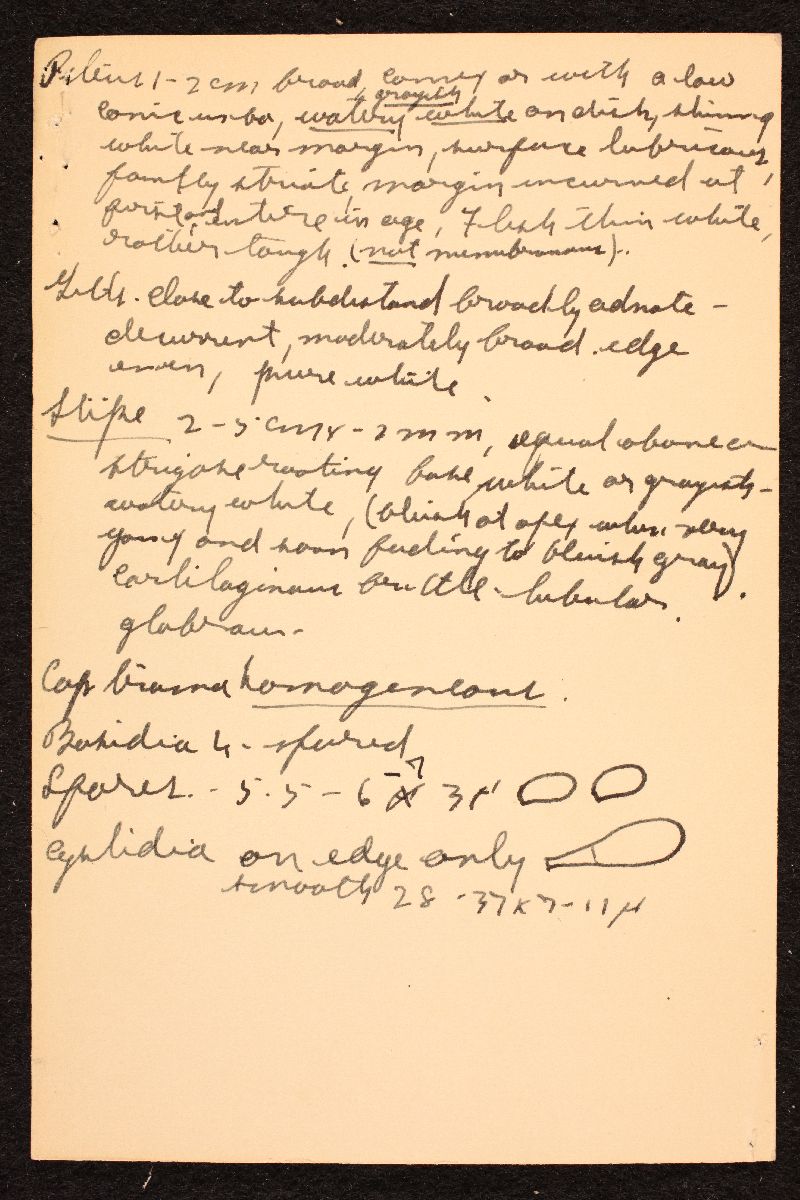 Pileus 1-2 cm broad, convex or with a low
conic umbo, watery grayish white on disk, shining
white near margin, surface lubricous,
faintly striate, margin incurved at
first and, in age, Flesh thin white,
rather tough (not membranous).
Gills. close to subdistant broadly adnate -
decurrent, moderately broad. edge
even, pure white.
Stipe 2-5 cm x - 2 mm, equal above a
strigose rooting base, white or grayish-
watery white, (bluish at apex when very
young and soon fading to bluish gray).
cartilaginous brittle - tubular.
glabrous -
Cap trama homogeneous.
Basidia 4-spored
Spores. - 5.5 - 6-7 x 3 µ
Cystidia on edge only
smooth 28-37 x 7-11 µ